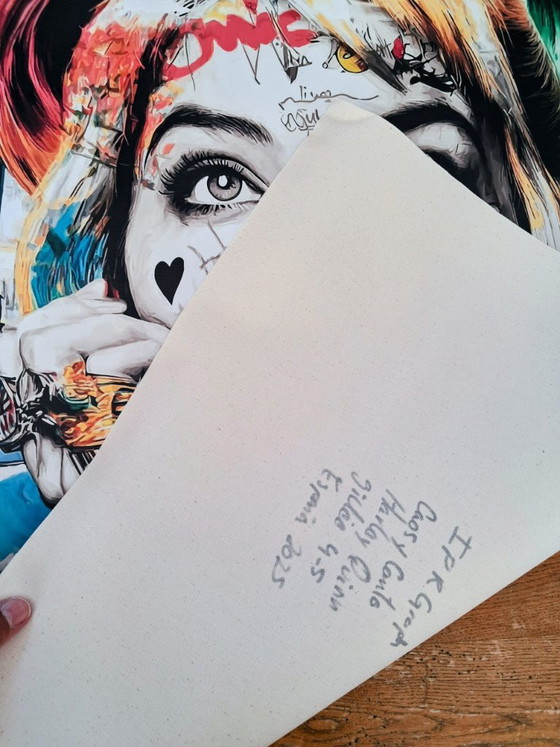 I P K Graph
Caos y Canto
Harley Quinn
Gicleé 4-5
España 2025